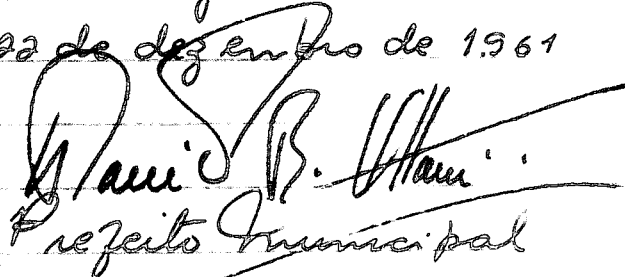 22 de dezembro de 1961
B.
Prefeito Municipal